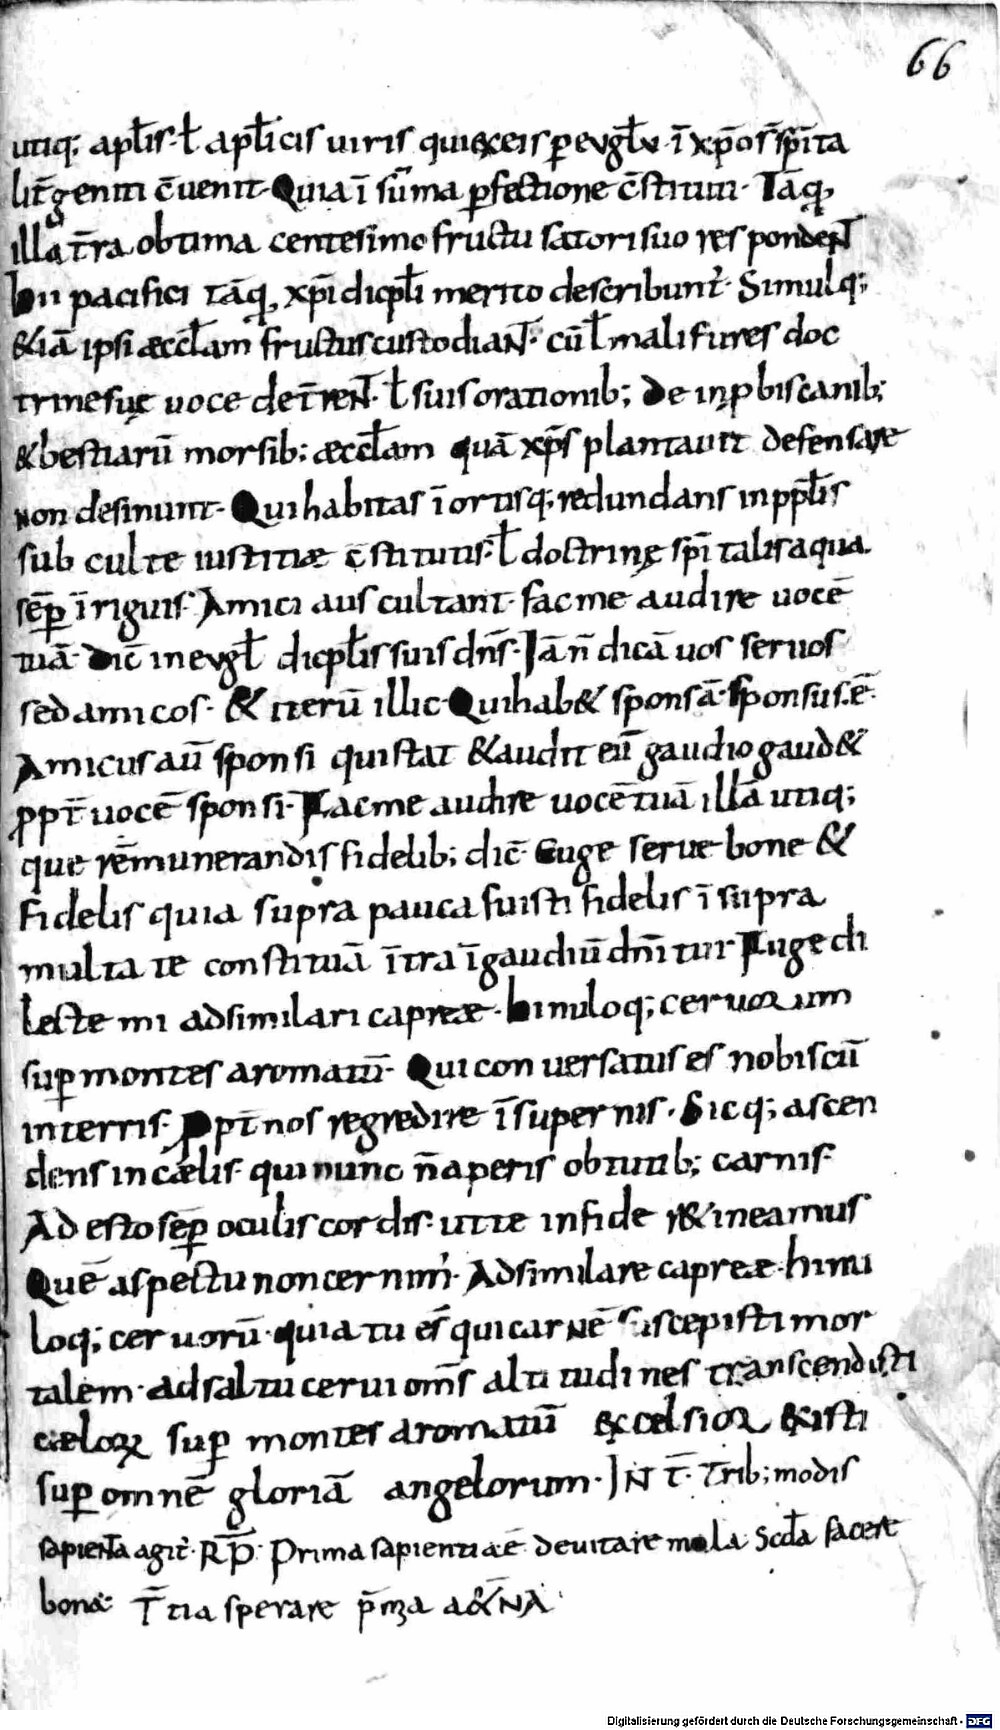 66
utiq; apl̄is· ł apl̄icis uiris qui exeis p evgl̄v· ī xp̄o s̄ sp̄ita
lit̄ geniti c̄uenit· Quia ī sūma pfectione c̄stituti· Tāq,
illa t̄ra obtima centesimo fructu satori suo respondeNT
hii pacifici tāq, xp̄i dicpl̄i merito describunt̄· Simulq;
&iā ipsi æccl̄am fructus custodiaNT· cū ł mali fures doc
trinę suę uoce det̄reNT· ł suis orationib; De inpbis canib;
& bestiarū morsib; æccl̄am quā xp̄s plantauit defensare
non desinunt· Qui habitas ī ortisq; redundans in pp̄lis
sub culte iustitiæ c̄stitutis· ł doctrinę sp̄italis aqua
sēp īriguis· Amici auscultant· fac me audire uocē
tuā· Dic̄ in evgl̄ dicpl̄is suis dn̄s· Jā n̄ dicā uos seruos
sed amicos· & iterū illic· Qui hab& sponsā· sponsus·ē·
Amicus aū sponsi qui stat & audit eū gaudio gaud&
ppt̄ uocē sponsi· Fac me audire uocē tuā illā utiq;
que rēmunerandis fidelib; dic̄· Euge serue bone &
fidelis quia supra pauca fuisti fidelis ī supra
multa te constituā ītra ī gaudiū dn̄i tui Fuge di
lecte mi adsimilari capreæ· hinuloq; ceruorum
sup montes aromatū· Qui conuersatus es nobiscū
in terris· Ppt̄ nos regredire ī supernis· Sicq; ascen
dens in cælis· qui nunc n̄ aperis obtutib; carnis·
Ad esto sēp oculis cordis· ut te in fide r&ineamus
Quē aspectu non cernim̄· Adsimilare capreæ· hinu
loq; ceruorū· quia tu es̄ qui carnē suscepisti mor
talem· ad saltu cerui om̄s altitudines transcendisti
cælorꝝ sup montes aromatū excelsior &isti
sup omnē gloriā angelorum· IN T̄· Trib; modis
sapieNTa agit̄· RP̄· Prima sapientia ē deuitare mala Scd̄a facere
bona· T̄tia sperare p̄mia a&̄NA·
Digitalisierung gefördert durch die Deutsche Forschungsgemeinschaft - DFG